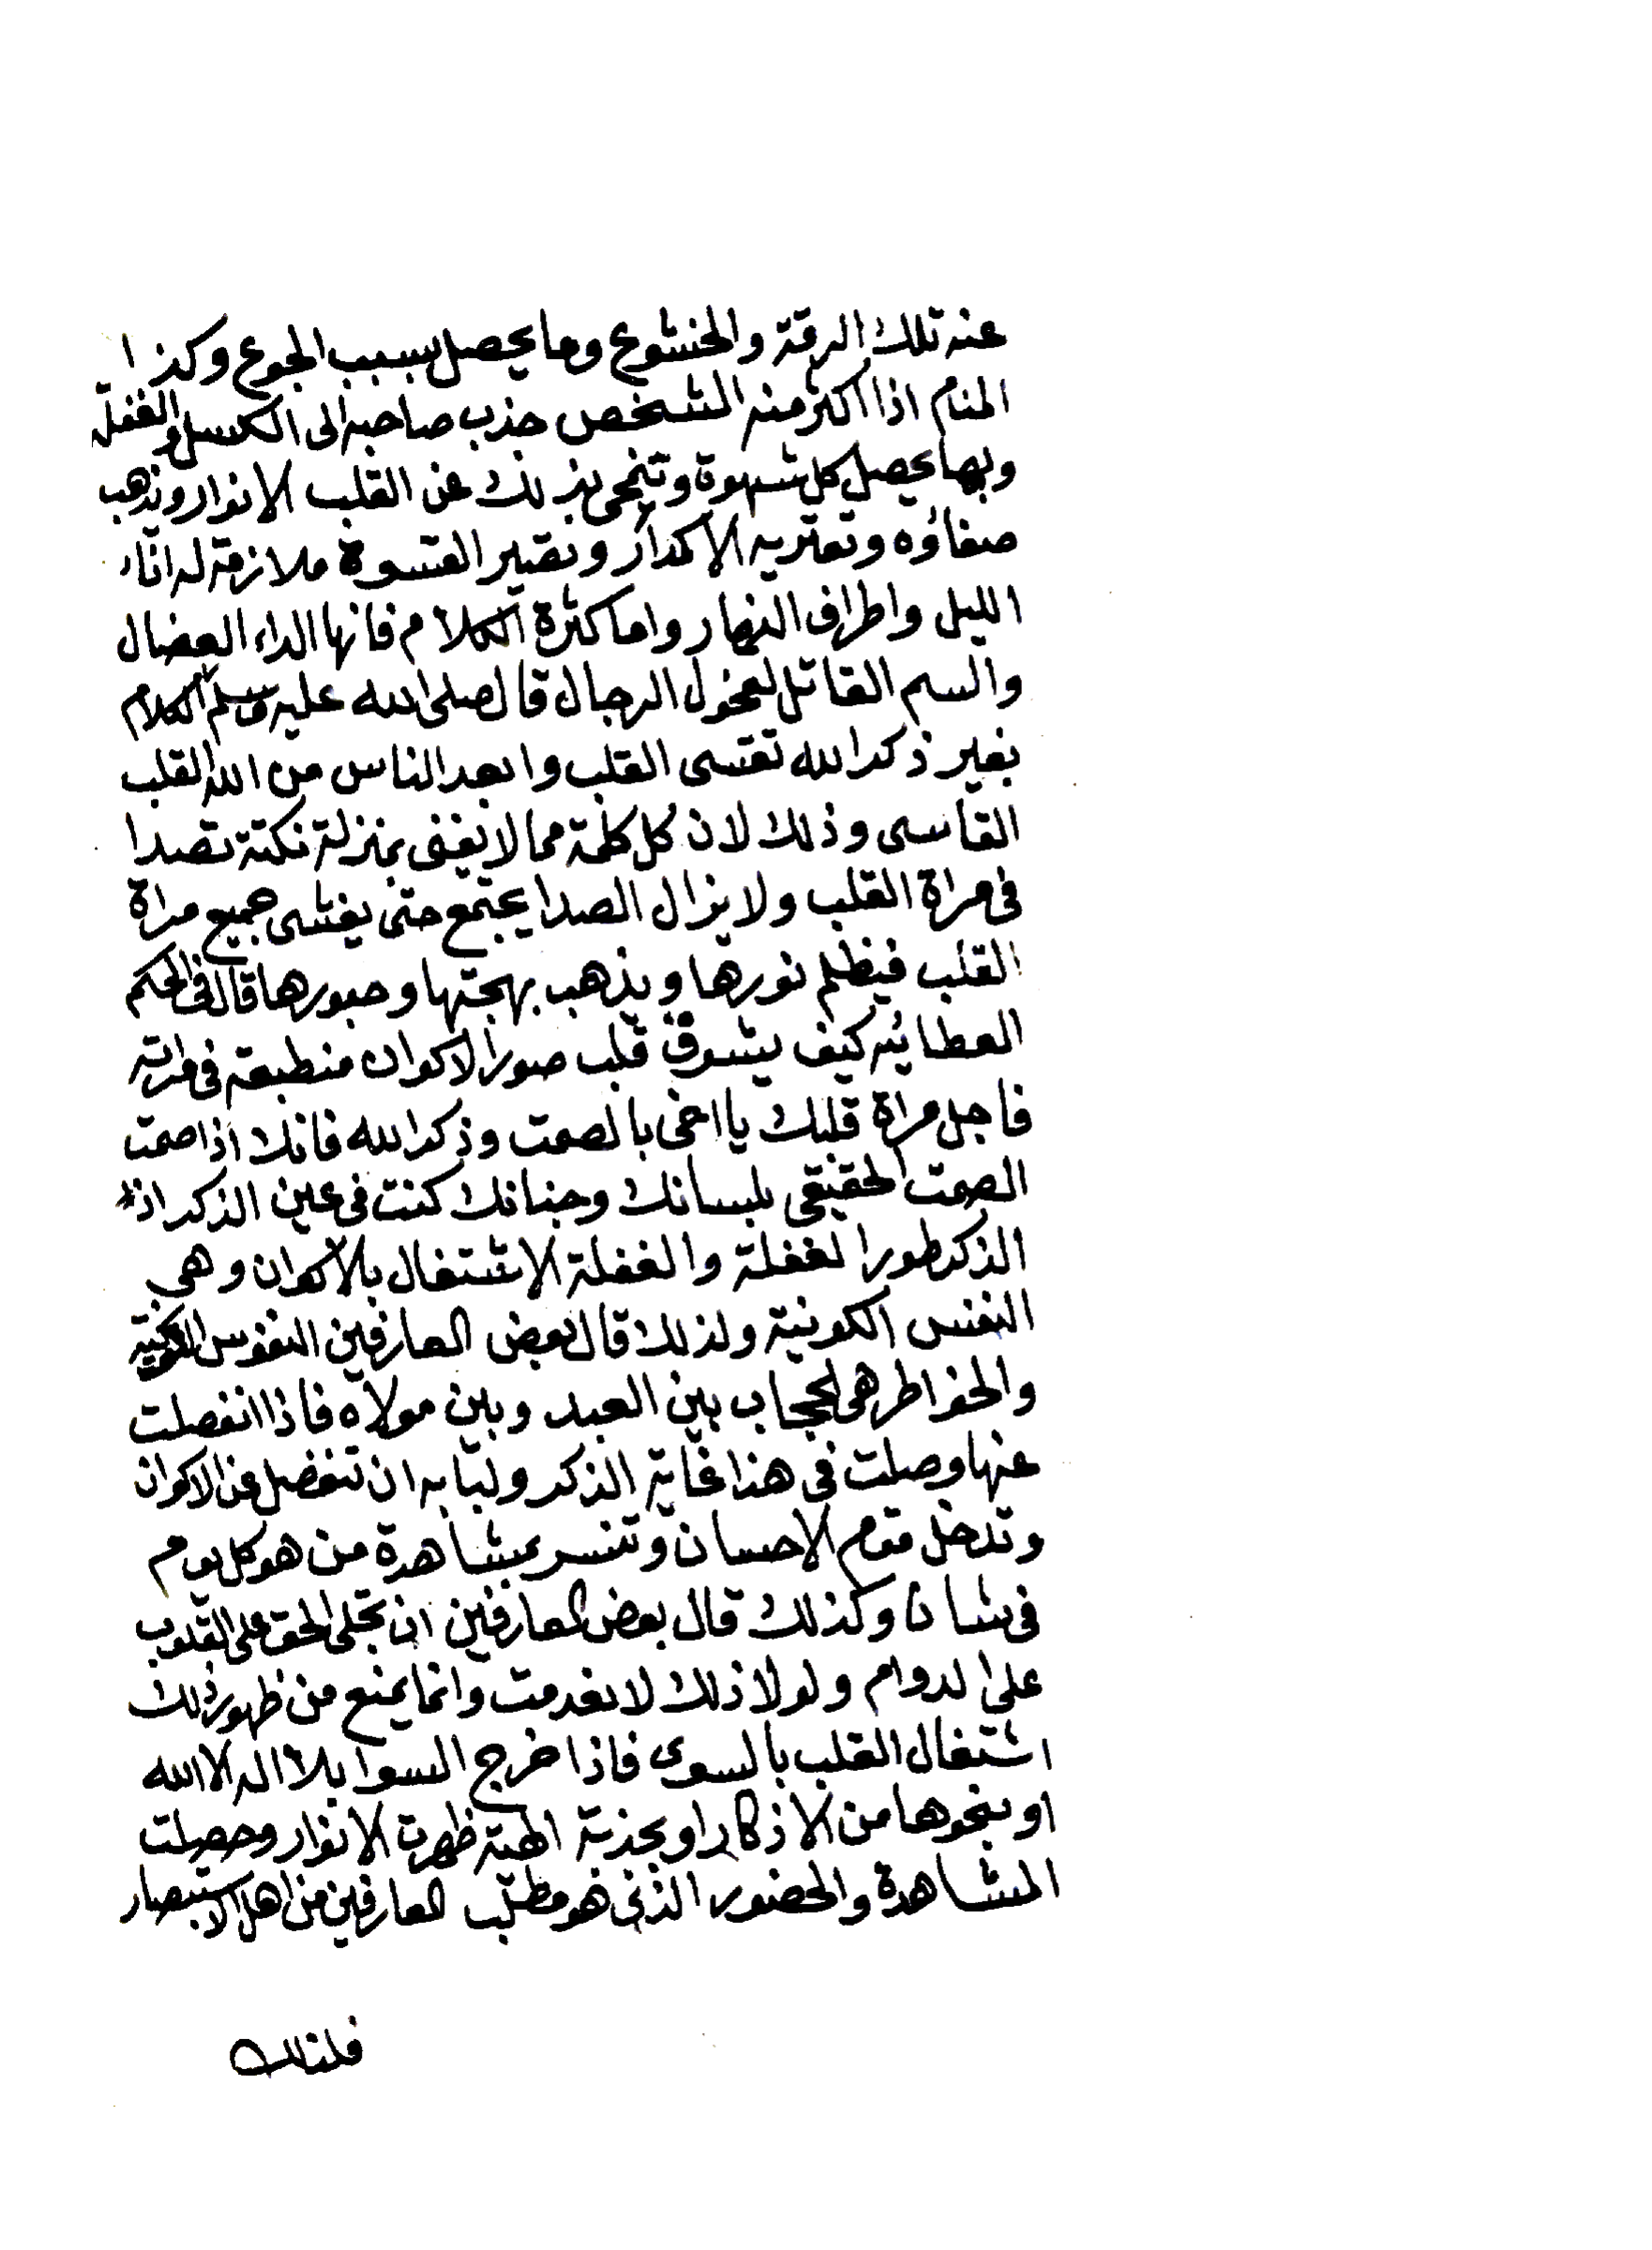 عنه تلك الرقة والخشوع وما يحصل بسبب الجوع وكذا
المنام اذا اكثر منه الشخص جذب صاحبه الى الكسل والغفلة
وبها يحصل كل شهوة وتنمحى بذلك عن القلب الانوار ويذهب
صفاؤه وتعتريه الاكدار وتصير القسوة ملازمة له اناء
الليل واطراف النهار واما كثرة الكلام فانها الداء العضال
والسم القاتل لفحول الرجال قال صلى الله عليه وسلم الكلام
بغير ذكر الله تقسى القلب وابعد الناس من الله القلب
القاسى وذلك لان كل كلمة مما لا يعنى بمنزلة نكتة تصدا
فى مراة القلب ولا يزال الصدا يجتمع حتى يغشى جميع مراة
القلب فيظلم نورها ويذهب بهجتها وحبورها قال فى الحكم
العطائيه كيف يشرق قلب صور الاكوان منطبعة فى مراته
فاجل مراة قلبك يا اخى بالصمت وذكر الله فانك اذا صمت
الصمت الحقيقى بلسانك وجنانك كنت فى عين الذكر اذ
الذكر طور الغفلة والغفلة الاشتغال بالاكوان وهى
النفس الكونية ولذلك قال بعض العارفين النفوس الكونية
والخواطر هى الحجاب بين العبد وبين مولاه فاذا انفصلت
عنها وصلت فى هذا غاية الذكر ولبابه ان تنفصل عن الاكوان
وتدخل مقام الاحسان وتنسر بمشاهدة من هو كل يوم
فى شان وكذلك قال بعض العارفين ان تجلى الحق على القلوب
على الدوام ولولا ذلك لانعدمت وانما يمنع من ظهور ذلك
اشتغال القلب بالسوى فاذا خرج السوا بلا اله الا الله
او بنحوها من الاذكار او بجذبة الهية ظهرت الانوار وحصلت
المشاهدة والحضور الذى هو مطلب العارفين من اهل الاستبصار